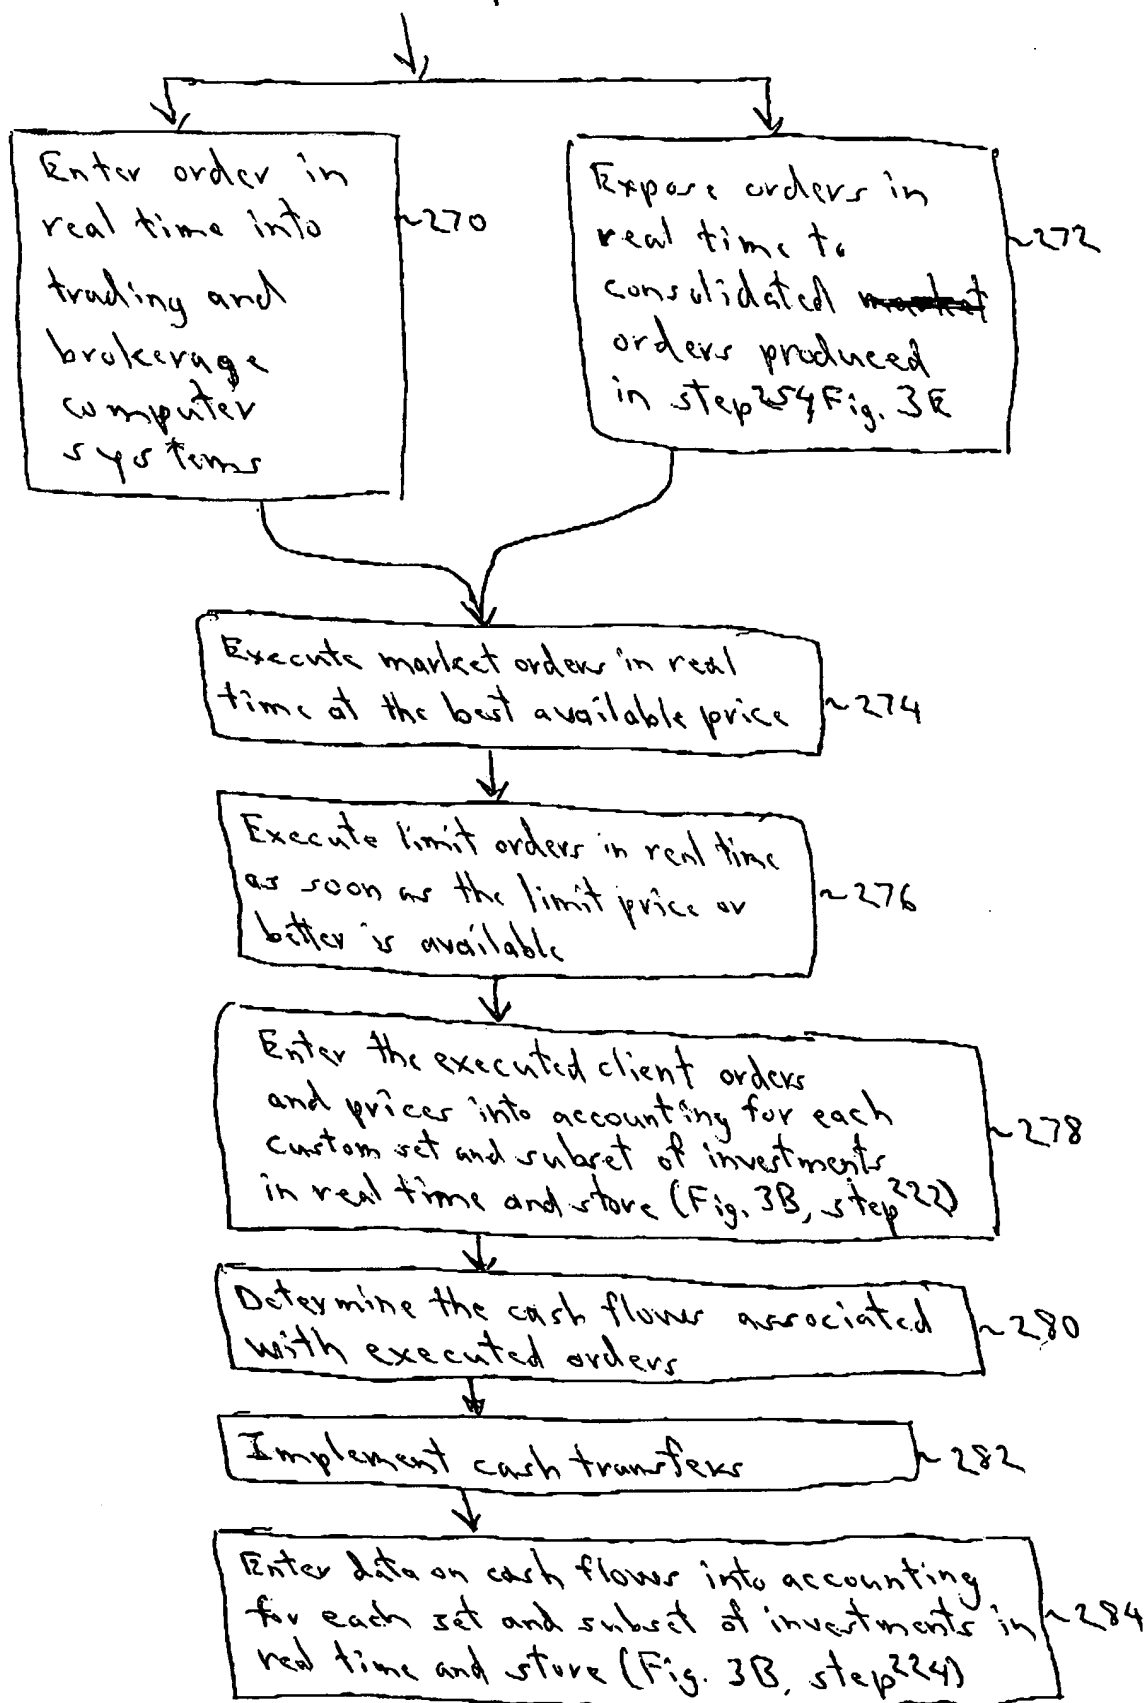 Enter order in
real time into
trading and
brokerage
computer
systems
~270
Expose orders in
real time to
consolidated
orders produced
in step 254, Fig. 3E
~272
Execute market orders in real
time at the best available price
~274
Execute limit orders in real time
as soon as the limit price or
better is available
~276
Enter the executed client orders
and prices into accounting for each
custom set and subset of investments
in real time and store (Fig. 3B, step 222)
~278
Determine the cash flows associated
with executed orders
~280
Implement cash transfers
~282
Enter data on cash flows into accounting
for each set and subset of investments in
real time and store (Fig. 3B, step 224)
~284